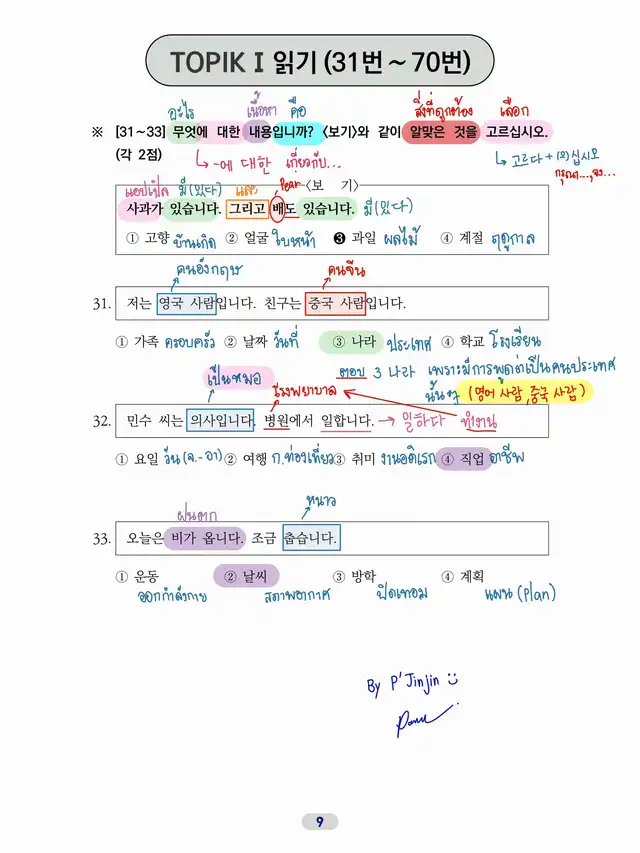 TOPIK I 읽기 (31번 ~ 70번)
อะไร เนื้อหา คือ สิ่งที่ถูกต้อง เลือก
※ [31~33] 무엇에 대한 내용입니까? <보기>와 같이 알맞은 것을 고르십시오.
(각 2점)
↳ -에 대한 เกี่ยวกับ...
↳ 고르다 + (으)십시오
กรุณา...,จง...
<보 기>
แอปเปิ้ล มี (있다) และ Pear
사과가 있습니다. 그리고 배도 있습니다. มี (있다)
① 고향 บ้านเกิด ② 얼굴 ใบหน้า ❸ 과일 ผลไม้ ④ 계절 ฤดูกาล
คนอังกฤษ คนจีน
31. 저는 영국 사람입니다. 친구는 중국 사람입니다.
① 가족 ครอบครัว ② 날짜 วันที่ ③ 나라 ประเทศ ④ 학교 โรงเรียน
ตอบ 3 나라 เพราะมีการพูดว่าเป็นคนประเทศ
นั้นๆ (영어 사람, 중국 사람)
เป็นหมอ โรงพยาบาล
32. 민수 씨는 의사입니다. 병원에서 일합니다. → 일하다 ทำงาน
① 요일 วัน (จ.-อา) ② 여행 ก.ท่องเที่ยว ③ 취미 งานอดิเรก ④ 직업 อาชีพ
ฝนตก หนาว
33. 오늘은 비가 옵니다. 조금 춥습니다.
① 운동 ② 날씨 ③ 방학 ④ 계획
ออกกำลังกาย สภาพอากาศ ปิดเทอม แผน (Plan)
By P'Jinjin
9